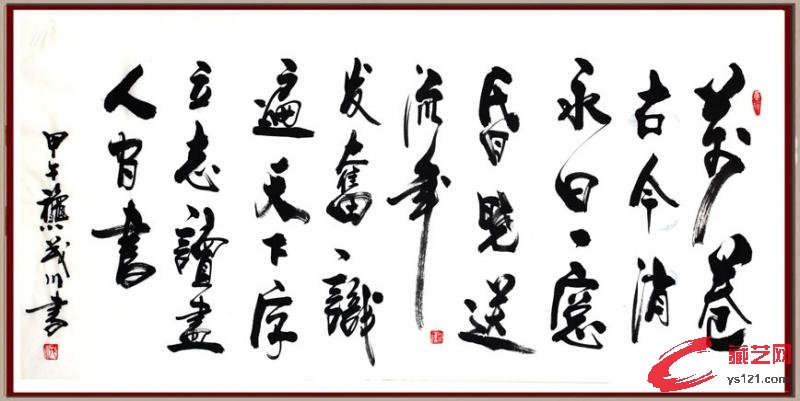 萬卷
古今消
永日一窓
昏曉送
流年
发奮識
遍天下字
立志讀盡
人间書
甲午 茂川書
藏艺网
ys121.com